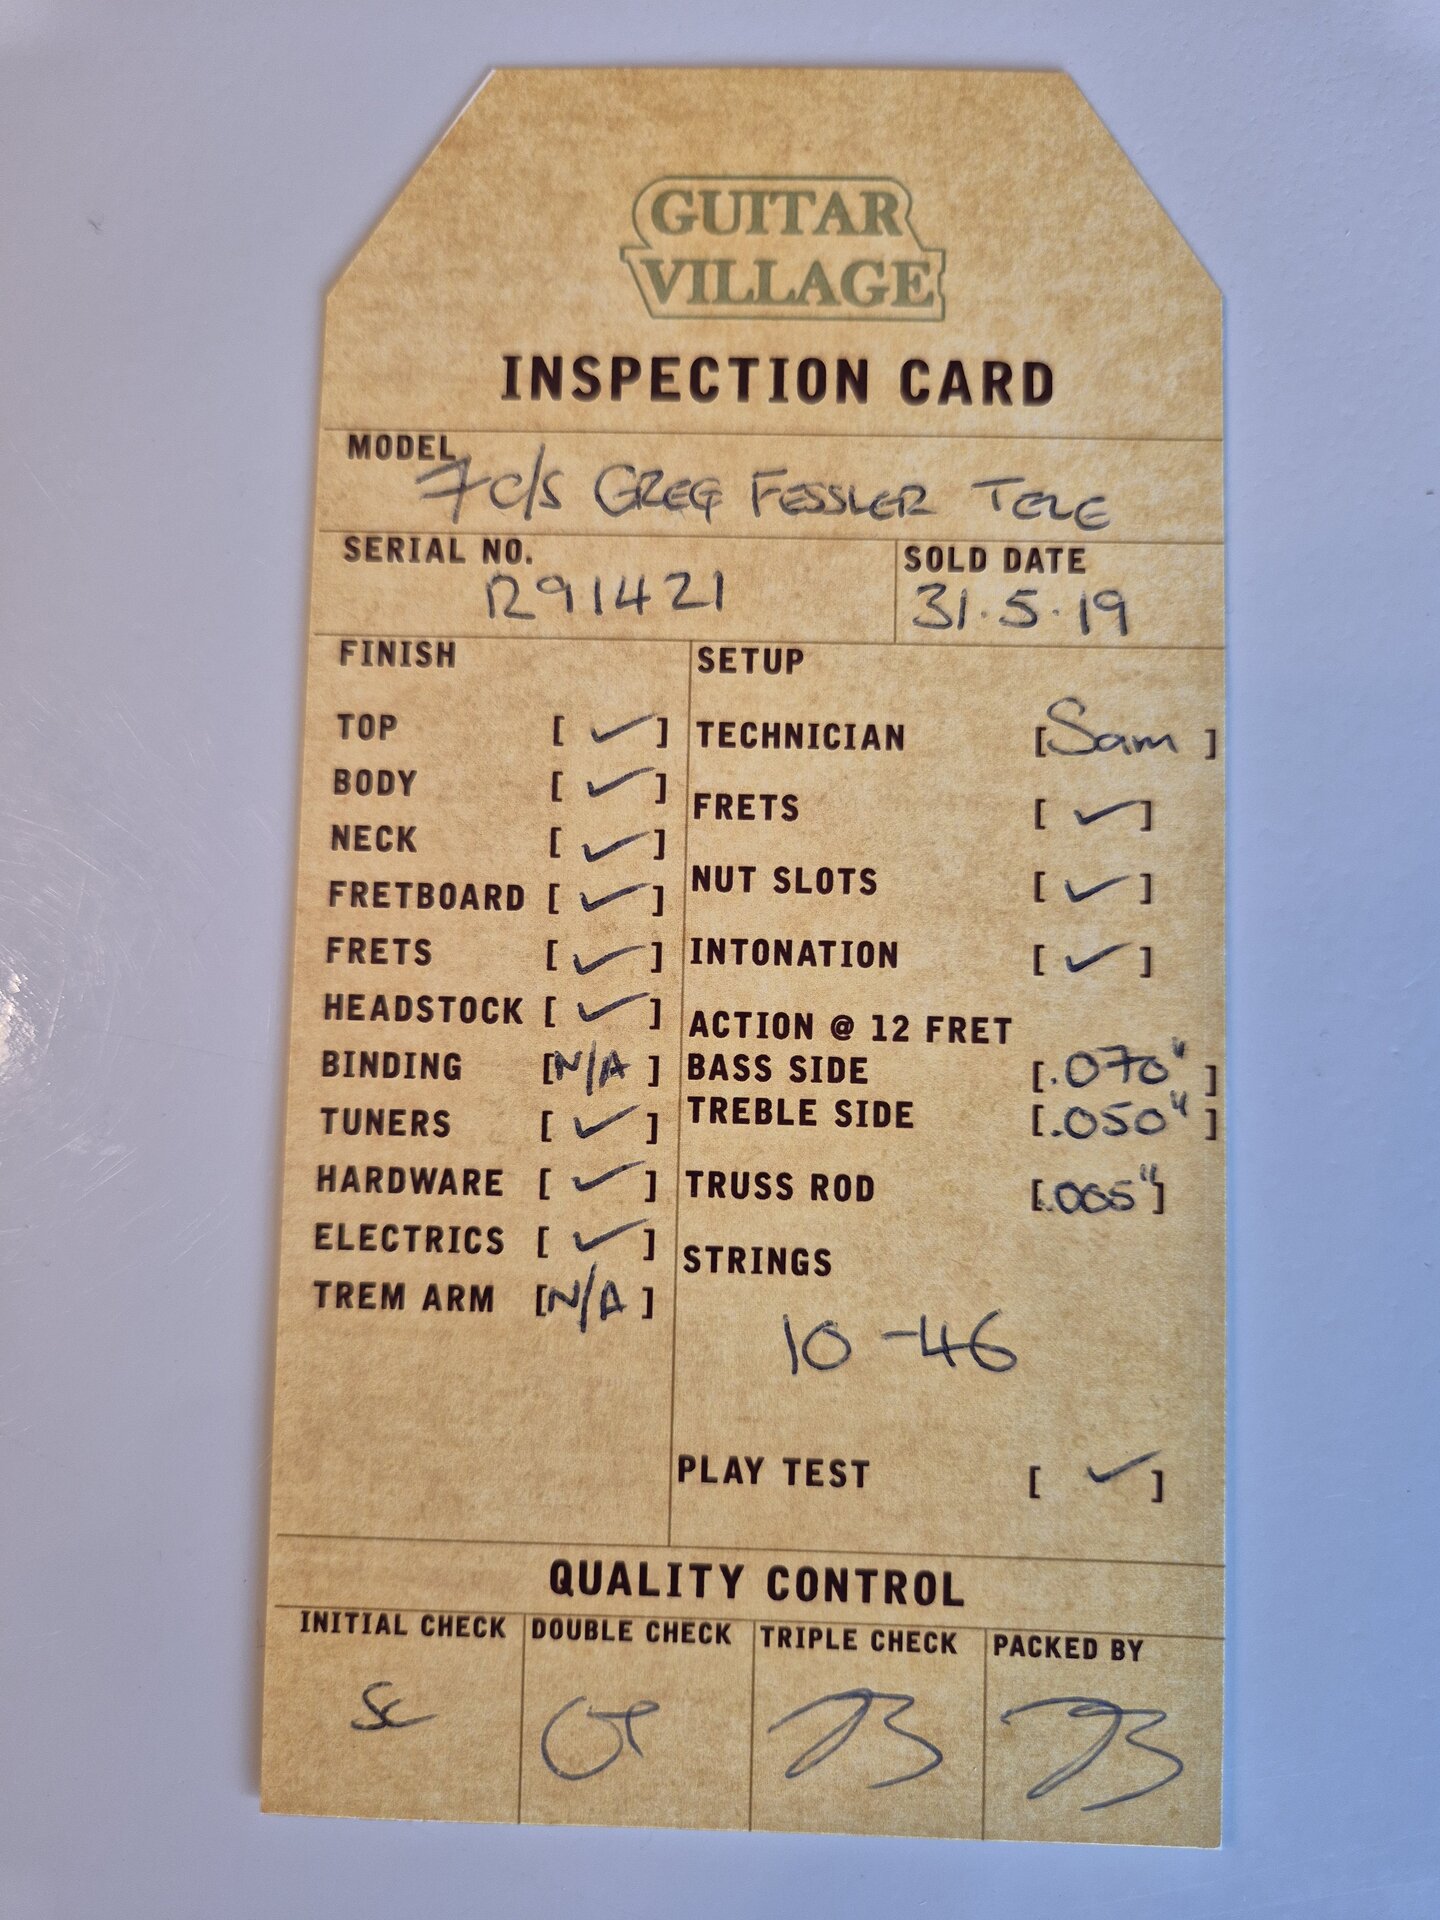 GUITAR
VILLAGE
INSPECTION CARD
MODEL
7 c/s GREG FESSLER TELE
SERIAL NO.
R91421
SOLD DATE
31.5.19
FINISH
TOP [ ✓ ]
BODY [ ✓ ]
NECK [ ✓ ]
FRETBOARD [ ✓ ]
FRETS [ ✓ ]
HEADSTOCK [ ✓ ]
BINDING [N/A ]
TUNERS [ ✓ ]
HARDWARE [ ✓ ]
ELECTRICS [ ✓ ]
TREM ARM [N/A ]
SETUP
TECHNICIAN [Sam ]
FRETS [ ✓ ]
NUT SLOTS [ ✓ ]
INTONATION [ ✓ ]
ACTION @ 12 FRET
BASS SIDE [.070" ]
TREBLE SIDE [.050" ]
TRUSS ROD [.005"]
STRINGS
10-46
PLAY TEST [ ✓ ]
QUALITY CONTROL
INITIAL CHECK
SC
DOUBLE CHECK
TRIPLE CHECK
PACKED BY